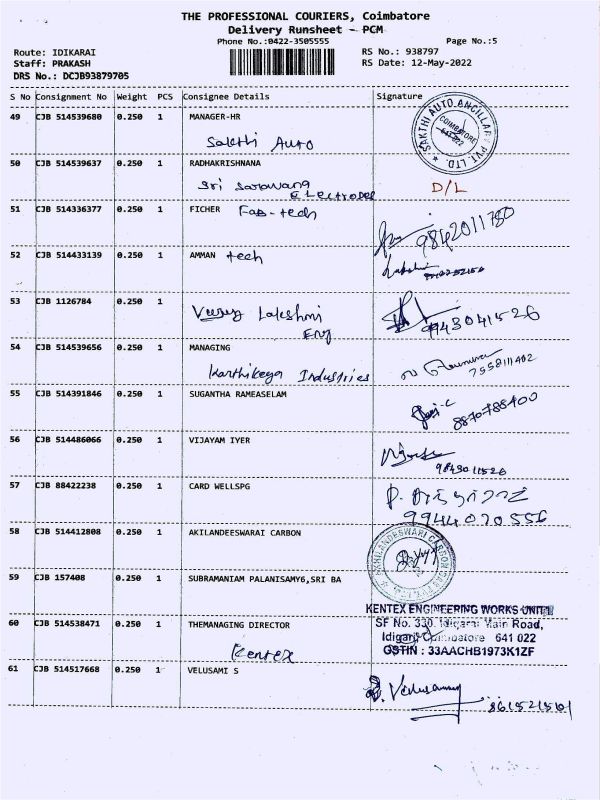 THE PROFESSIONAL COURIERS, Coimbatore
Delivery Runsheet - PCM
Phone No.:0422-3505555 Page No.:5
Route: IDIKARAI RS No.: 938797
Staff: PRAKASH RS Date: 12-May-2022
DRS No.: DCJB93879705
S No Consignment No Weight PCS Consignee Details Signature
49 CJB 514539680 0.250 1 MANAGER-HR
Sakthi Auto
SAKTHI AUTO ANCILLARY PVT. LTD.
COIMBATORE
641 022
50 CJB 514539637 0.250 1 RADHAKRISHNANA
Sri Saravana
Electrodes D/L
51 CJB 514336377 0.250 1 FICHER Fab-tech
9842011780
52 CJB 514433139 0.250 1 AMMAN tech
53 CJB 1126784 0.250 1
Lakshmi
Eng
9443041526
54 CJB 514539656 0.250 1 MANAGING
Karthikeya Industries
7558111402
55 CJB 514391846 0.250 1 SUGANTHA RAMEASELAM
8870788400
56 CJB 514486066 0.250 1 VIJAYAM IYER
9843011526
57 CJB 88422238 0.250 1 CARD WELLSPG
9944070556
58 CJB 514412808 0.250 1 AKILANDEESWARAI CARBON
AKHILANDESWARI CARBON GAS PVT. LTD.
59 CJB 157408 0.250 1 SUBRAMANIAM PALANISAMY6,SRI BA
60 CJB 514538471 0.250 1 THEMANAGING DIRECTOR
Kentex
KENTEX ENGINEERING WORKS UNIT
SF No. 330, Idigarai Main Road,
Idigarai Coimbatore 641 022
GSTIN : 33AACHB1973K1ZF
61 CJB 514517668 0.250 1 VELUSAMI S
S. Velusamy